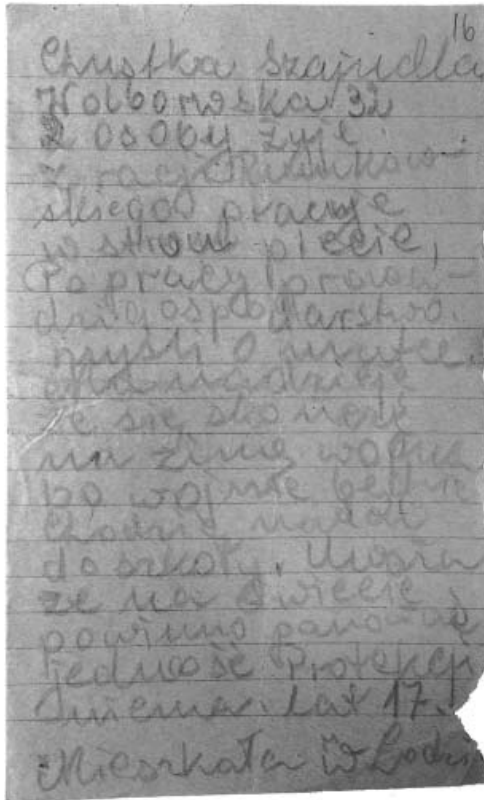 16
Chustka Szajndla
Wolborska 32
2 osoby żyje
z racji
skiego pracuje
w strow plecie,
Po pracy prowa-
dzi gospodarstwo.
myśli o
ma nadzieje
że się skończy
na zimę wojna
po wojnie będzie
chodzić
do szkoły. Uważa
że na świecie
powinno panować
jedność Protekcji
niema. lat 17.
Mieszkała w Łodzi